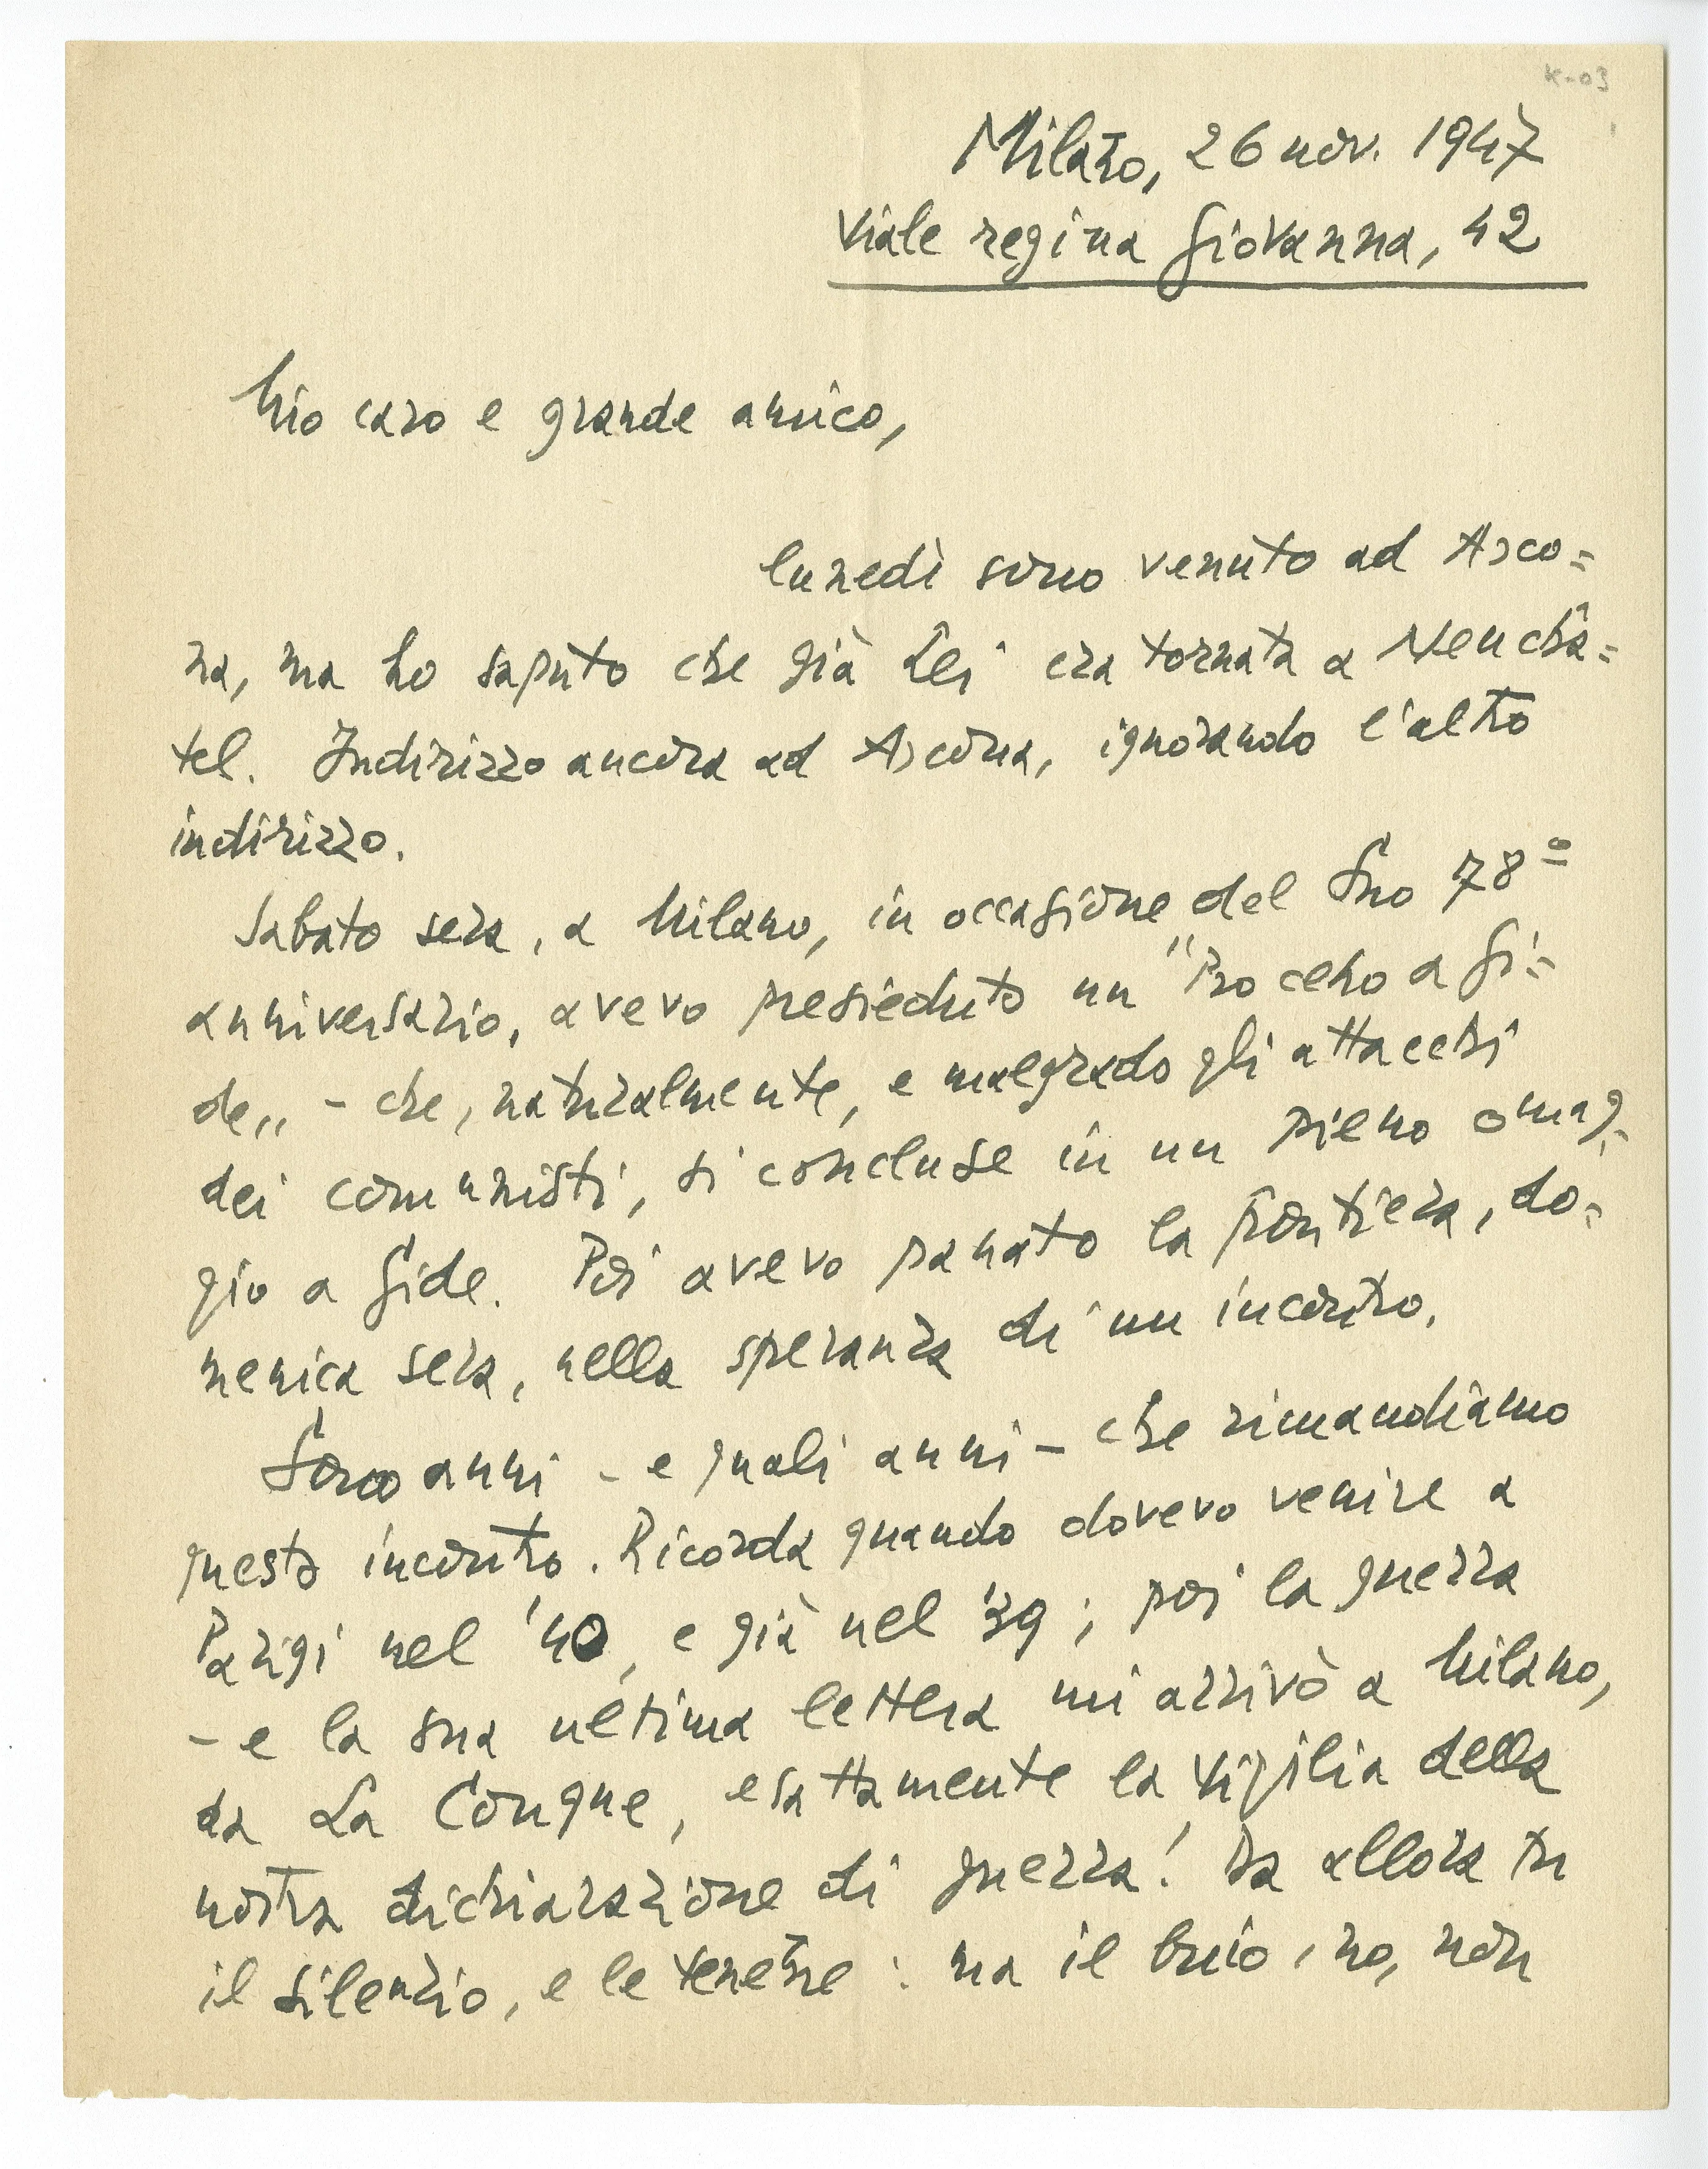 K-03
Milano, 26 nov. 1947
Viale regina Giovanna, 42
Mio caro e grande amico,
lunedì sono venuto ad Asco=
na, ma ho saputo che già Lei era tornata a Neuchâ=
tel. Indirizzo ancora ad Ascona, ignorando l'altro
indirizzo.
Sabato sera, a Milano, in occasione del Suo 78º
anniversario, avevo presieduto un "Processo a Gi=
de„ - che, naturalmente, e malgrado gli attacchi
dei comunisti, si concluse in un pieno omag=
gio a Gide. Poi avevo passato la frontiera, do=
menica sera, nella speranza di un incontro.
Sono anni - e quali anni - che rimandiamo
questo incontro. Ricorda quando dovevo venire a
Parigi nel '40, e già nel '39; poi la guerra
- e la sua ultima lettera mi arrivò a Milano,
da La Conque, esattamente la vigilia della
nostra dichiarazione di guerra! Da allora fu
il silenzio, e le tenebre: ma il buio, no, non